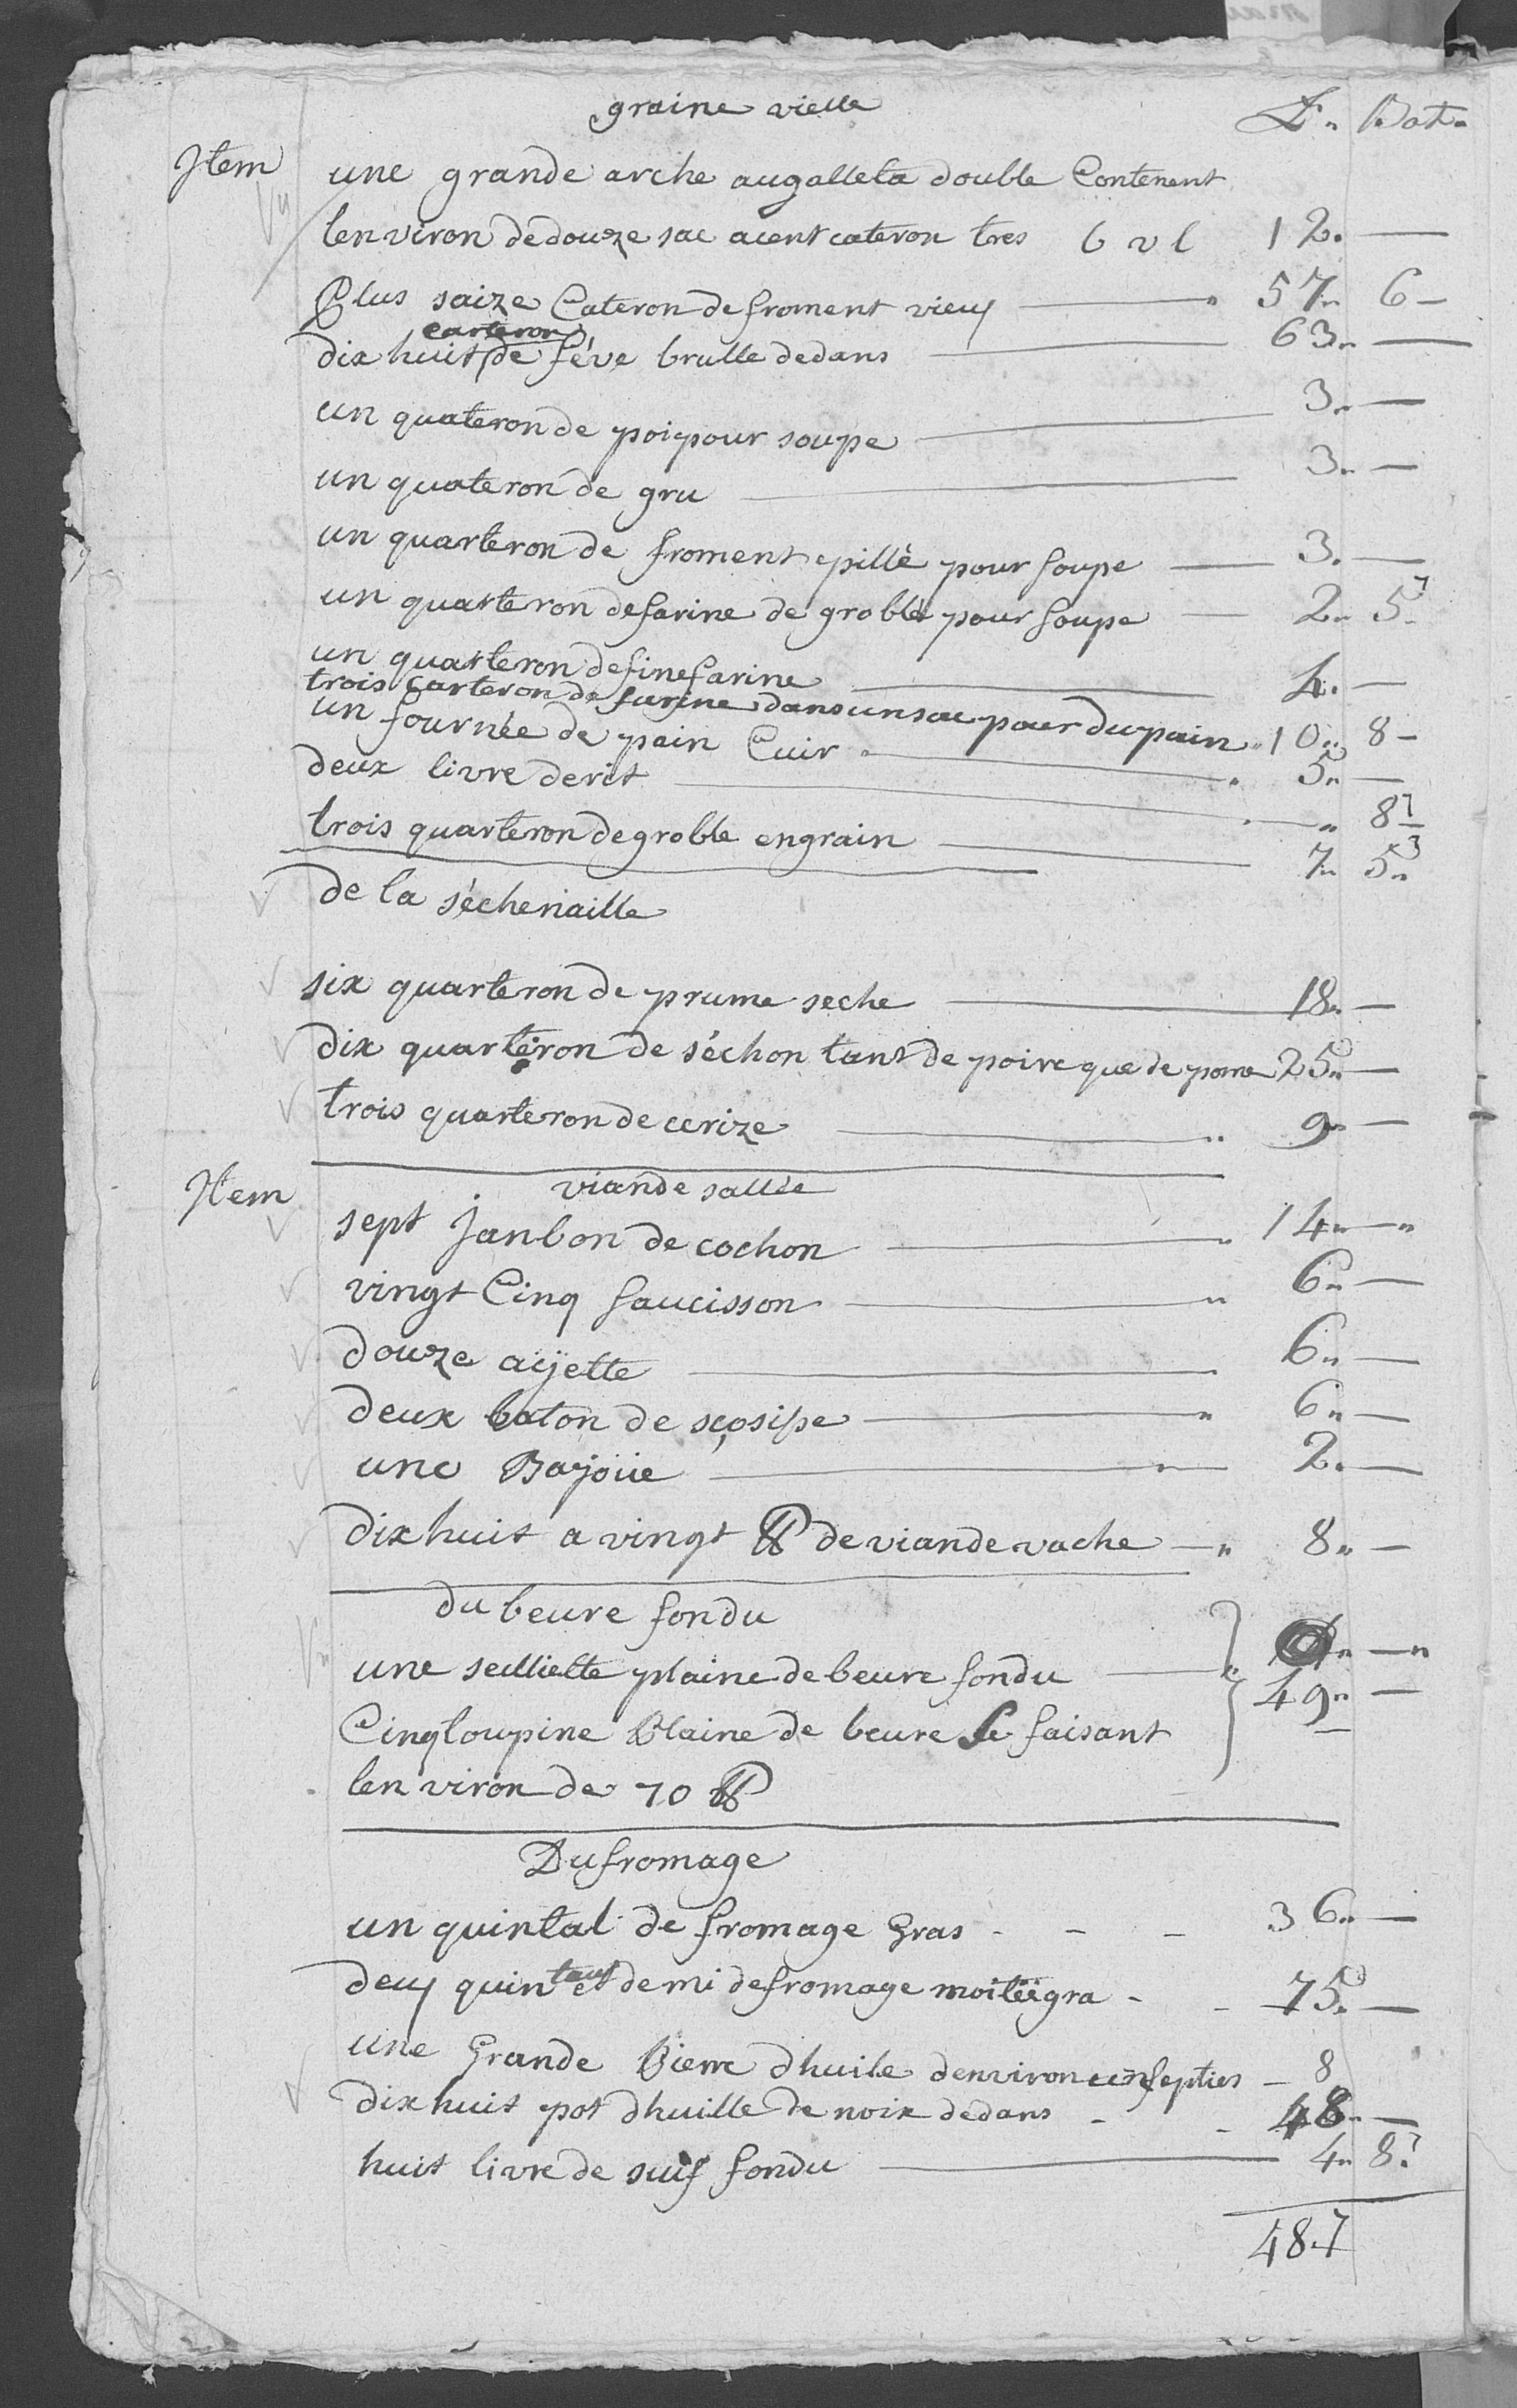 graine vielle
L" Bat"
Item une grande arche augalleta double Contenent
lenviron dedouze sac acent cateron tres 6 v l 12" —
Plus saize Cateron defroment vieux — " 57" 6 —
carteron
dix huit de féve brulle dedans — 63" —
un quateron de poi pour soupe — 3" —
un quateron de gru — 3" —
un quarteron de froment pillè pour soupe — 3" —
un quarteron defarine de groblet pour soupe — 2" 5"
un quarteron definefarine — 4" —
trois carteron de farine dans un sac pour du pain " 10" 8 —
un fournée de pain Cuir — " 5" —
deux livre derit — " 8
trois quarteron degroble engrain — 7" 5"
de la sécheriaille
six quarteron de prume seche — 18" —
dix quarteron de séchon tant de poire que de pome 25" —
trois quarteron de cerize — " 9" —
Item viande sallée
sept janbon de cochon — " 14" — "
vingt Cinq saucisson — " 6" —
douze aijette — " 6" —
deux baton de sçosisse — " 6" —
une Bajoüe — " 2" —
dix huit a vingt ℔ de viande vache — " 8" —
du beure fondu
une seilliette plaine de beure fondu — " — "
49" —
Cinq toupine Plaine de beure le faisant
lenviron de 70 ℔
Du fromage
un quintal de fromage Gras - - - 36" —
deux quintaux et demi defromage moitiégra - - 75" —
une Grande Pierre dhuile denviron un septier — 8
dix huit pot dhuille de noix dedans - - 48" —
huit livre de suif fondu — 4" 8
487